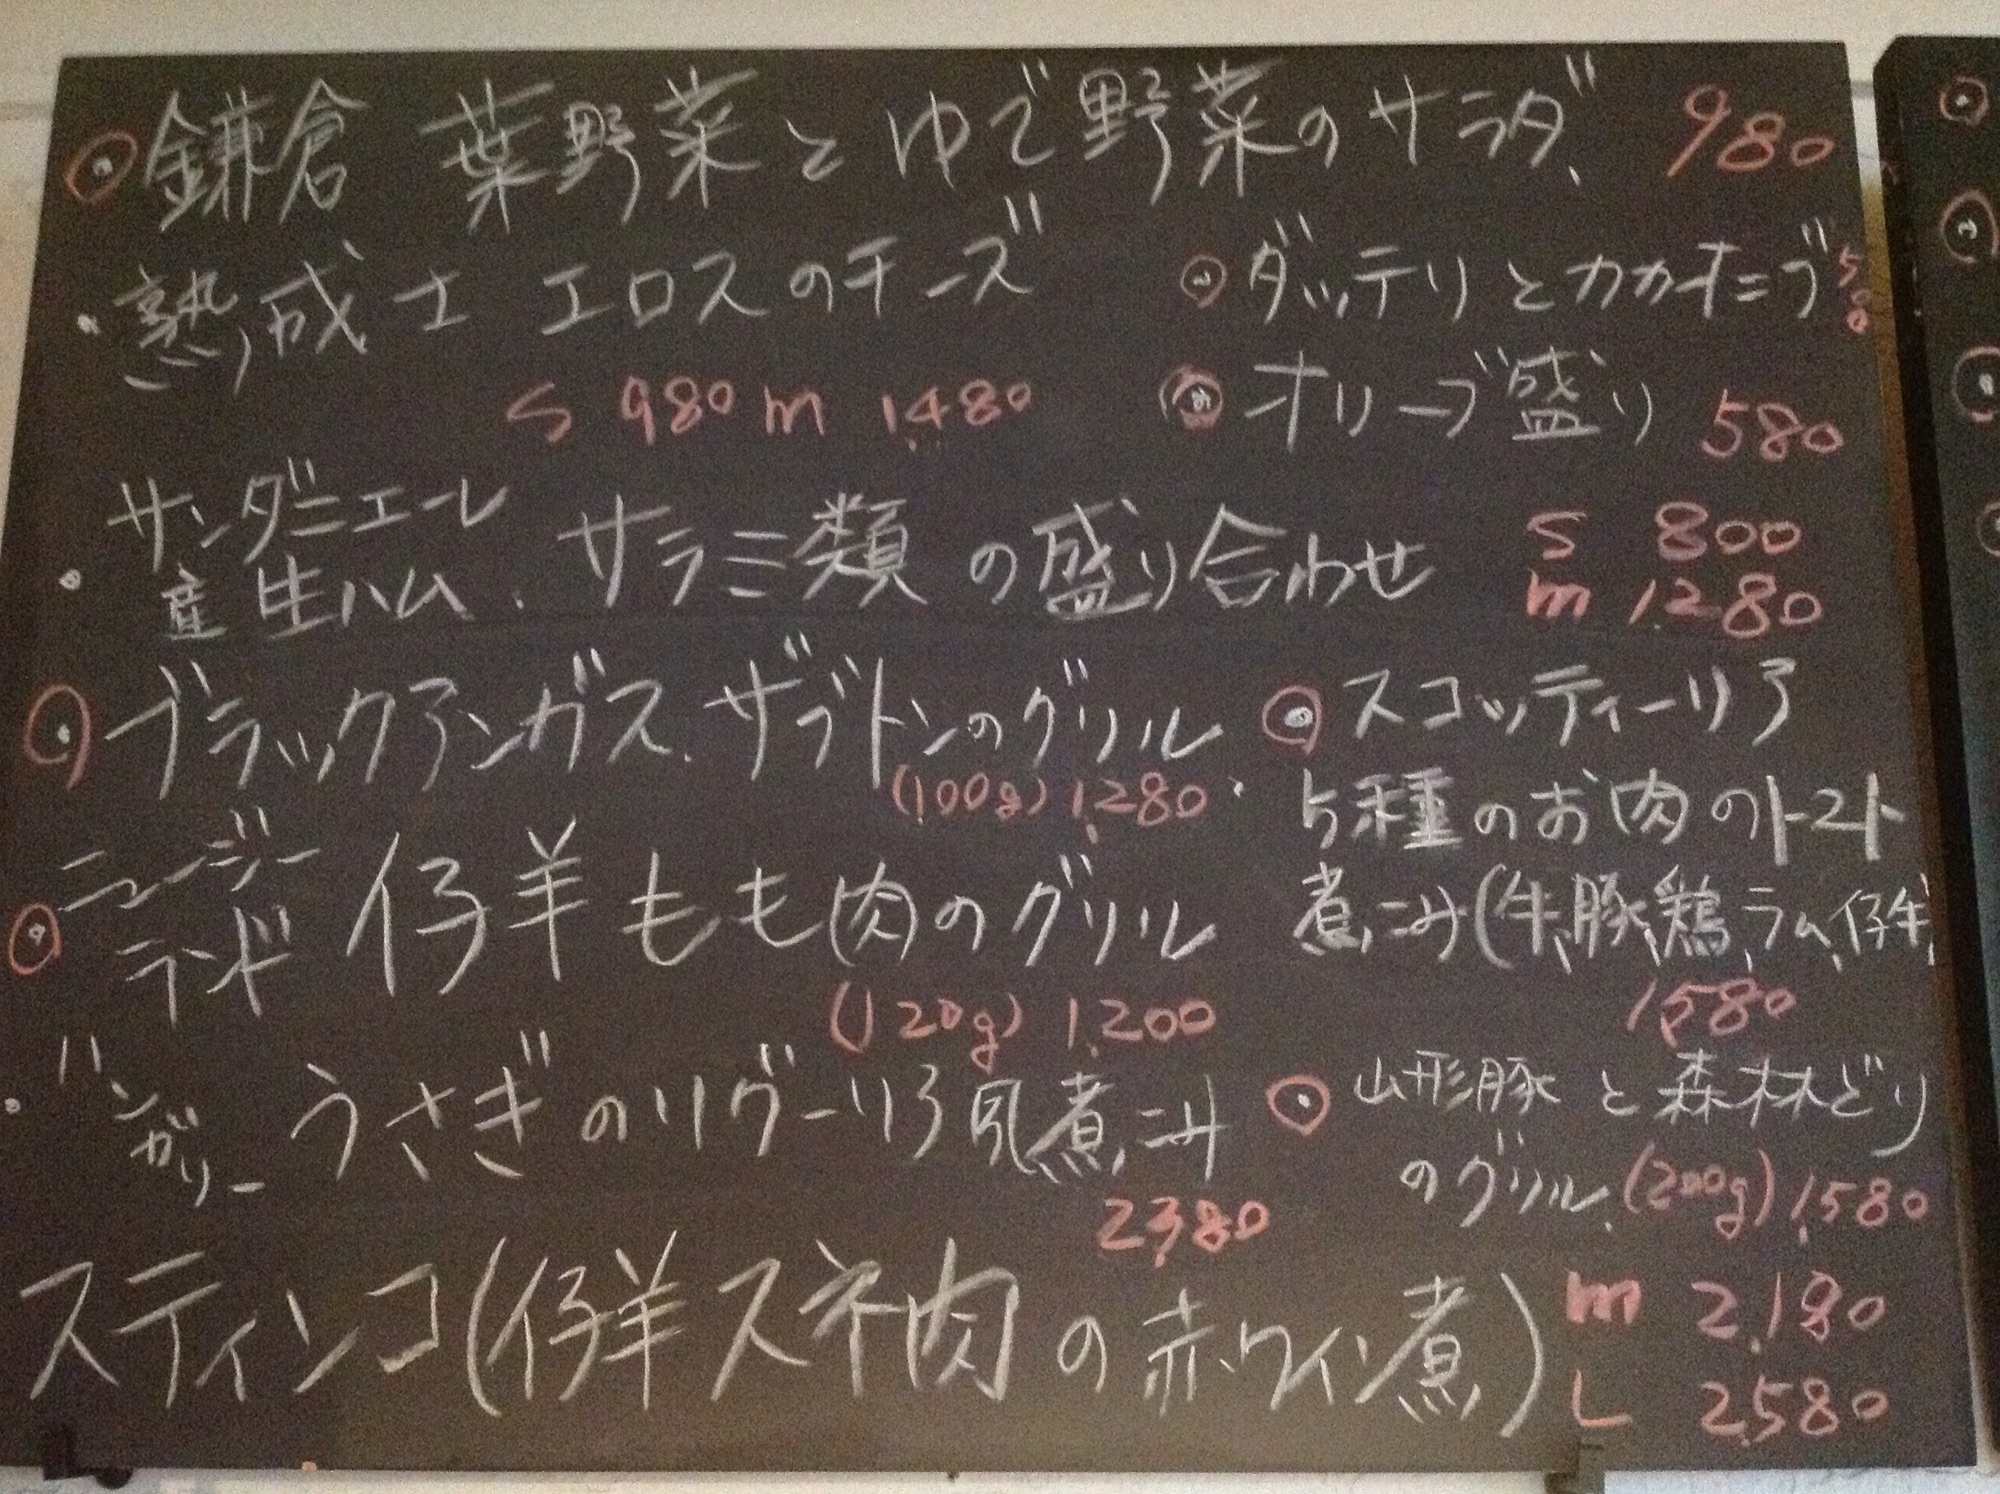 鎌倉 葉野菜とゆで野菜のサラダ. 980
熟成士 エロスのチーズ
S 980 m 1,480
ダッテリとカカオニブ 500
オリーブ盛り 580
サンダニエーレ
産 生ハム、サラミ類の盛り合わせ
S 800
m 1,280
ブラックアンガス、ザブトンのグリル
(100g) 1,280
スコッティーリア
5種のお肉のトマト
煮こみ(牛、豚、鶏、ラム、仔牛)
1,580
ニュージー
ランド 仔羊もも肉のグリル
(120g) 1,200
ハンガリー うさぎのリグーリア風煮こみ
2,380
山形豚と森林どり
のグリル (200g) 1,580
スティンコ(仔羊スネ肉の赤ワイン煮)
m 2,180
L 2,580